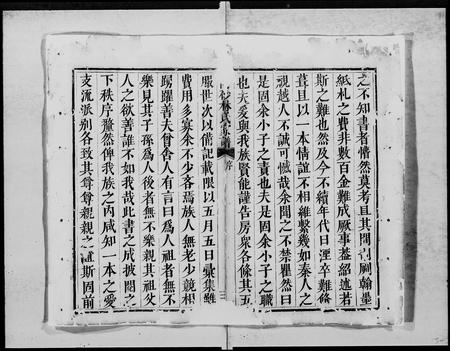 之不知書者懵然莫考且其間剞劂翰墨
紙札之費非數百金難成厥事葢紹述若
斯之難也然及今不續年代日湮卒難脩
葺且以一本情誼不相維繫幾如秦人之
視越人不誠可慨哉余聞之不禁瞿然曰
是固余小子之責也夫是固余小子之職
也夫爰與我族賢能謹告房衆各條其五
林氏 序
服世次以備記載限以五月五日彙集雖
費用多寡余不少吝焉族人無老少競相
踴躍善夫會舍人有言曰爲人祖者無不
樂見其子孫爲人後者無不樂親其祖父
人之欲善誰不如我哉此書之成披閱之
下秩序釐然俾我族之內咸知一本之愛
支流派別各致其尊尊親親之 斯固前